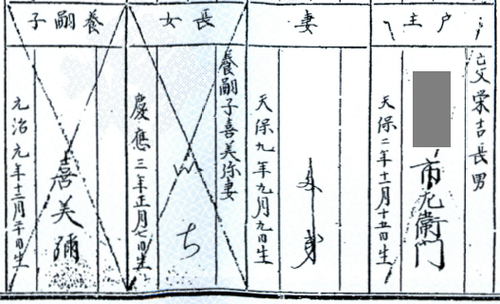 戸主
亡父栄吉長男
市左衛門
天保二年十二月十五日生
妻
天保九年九月九日生
長女
養嗣子喜美弥妻
ち
慶應三年正月七日生
養嗣子
喜美彌
元治元年十二月二十日生